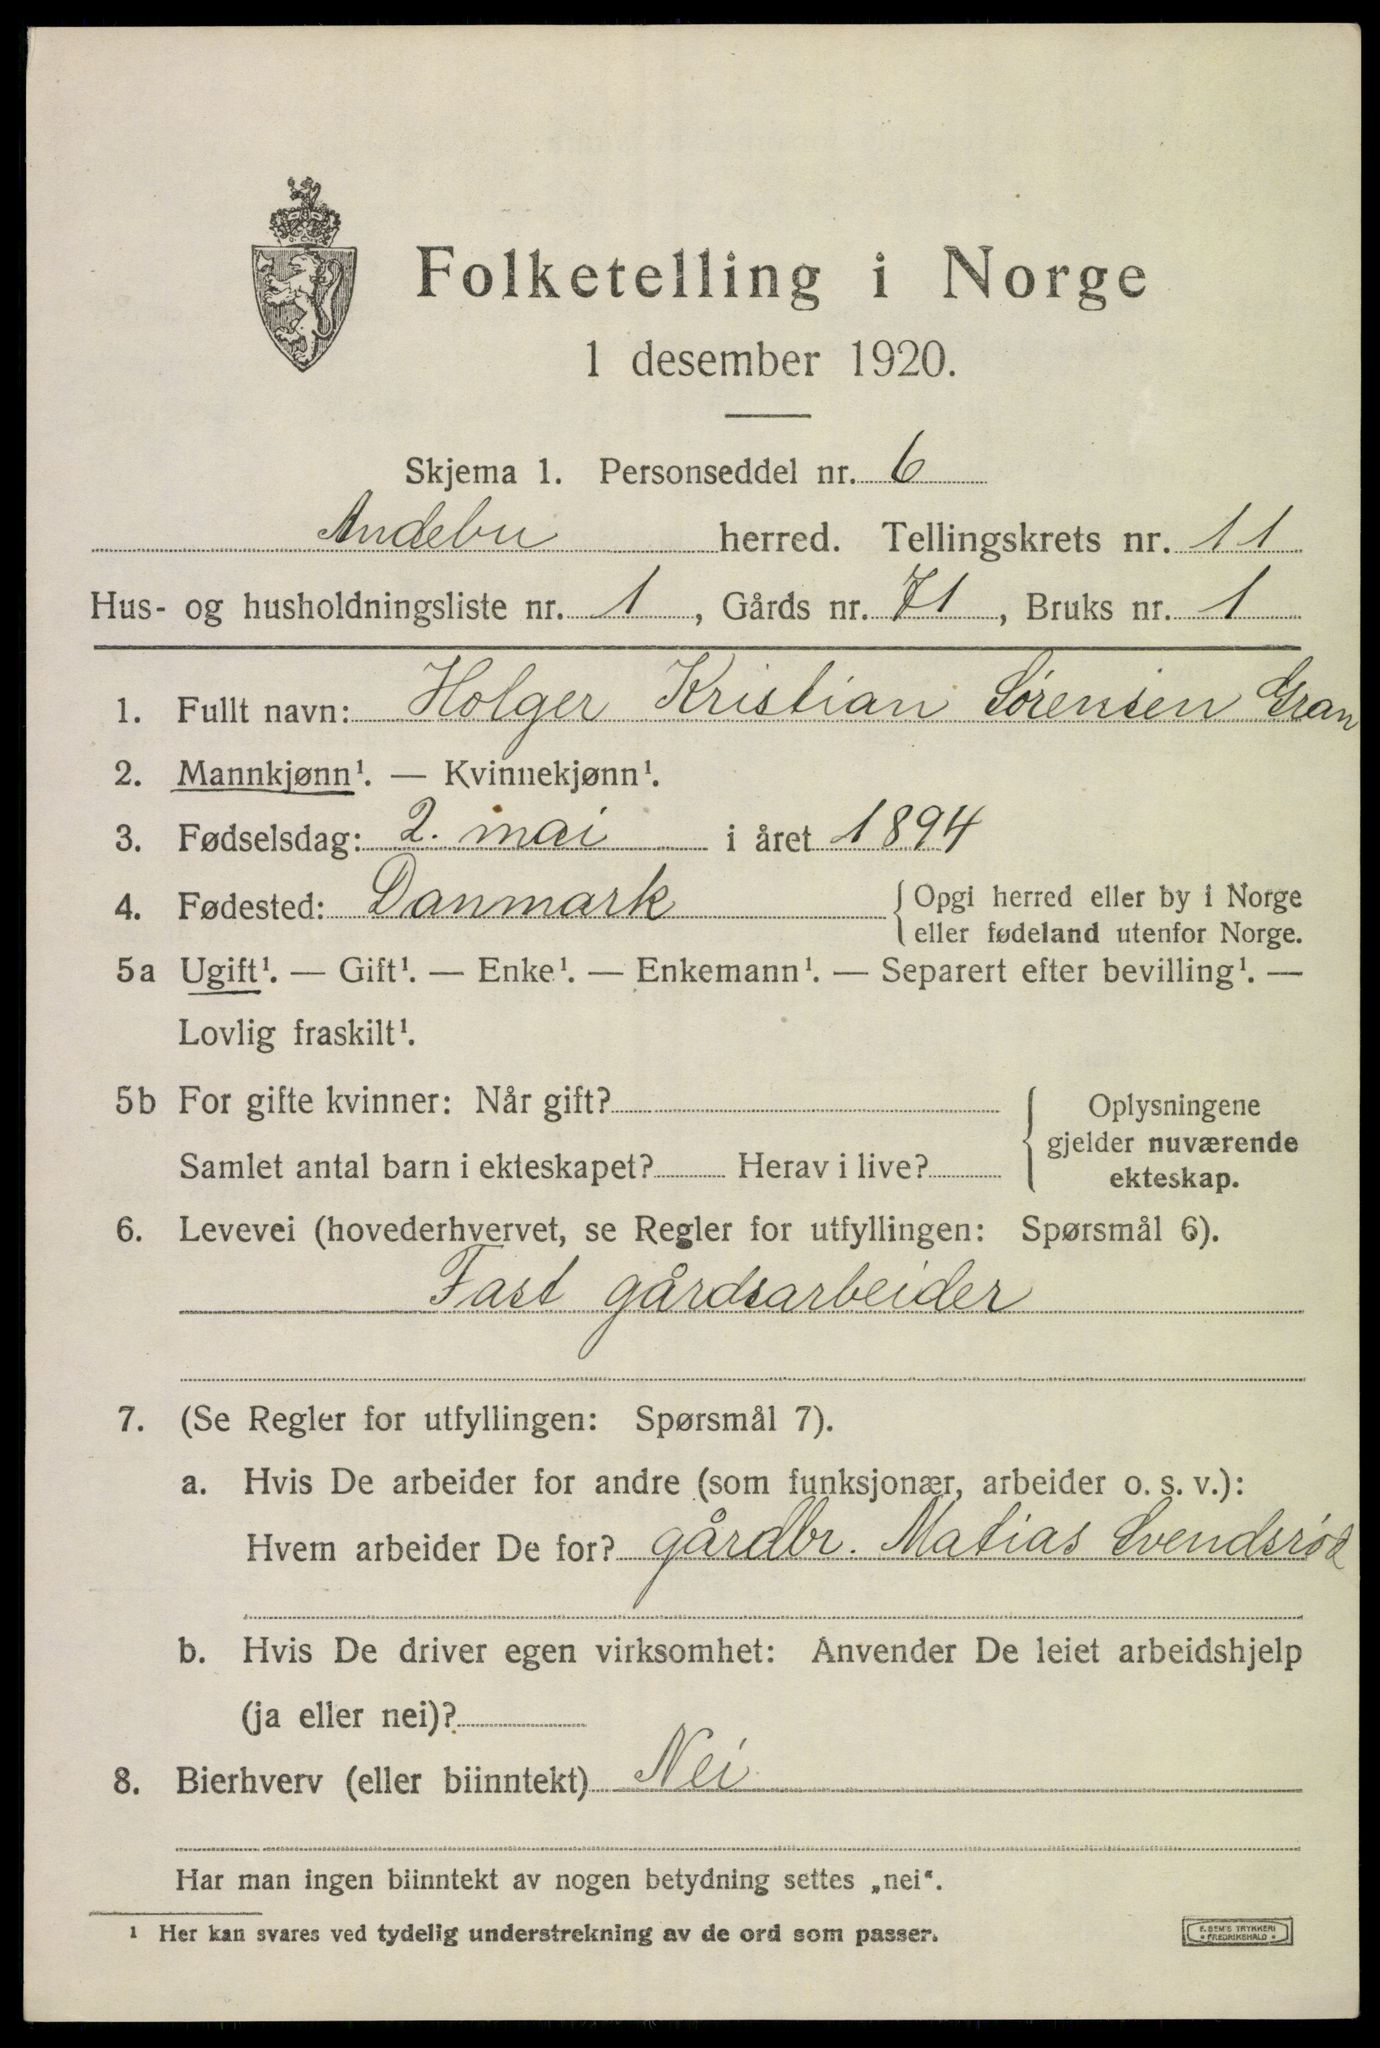 Folketelling i Norge
1 desember 1920.
Skjema 1. Personseddel nr. 6
Andebu herred. Tellingskrets nr. 11
Hus- og husholdningsliste nr. 1, Gårds nr. 71, Bruks nr. 1
1. Fullt navn: Holger Kristian Sørensen Gran
2. Mannkjønn¹. — Kvinnekjønn¹.
3. Fødselsdag: 2. mai i året 1894
4. Fødested: Danmark { Opgi herred eller by i Norge
eller fødeland utenfor Norge.
5a Ugift¹. — Gift¹. — Enke¹. — Enkemann¹. — Separert efter bevilling¹. —
Lovlig fraskilt¹.
5b For gifte kvinner: Når gift? { Oplysningene
gjelder nuværende
Samlet antal barn i ekteskapet? Herav i live? ekteskap.
6. Levevei (hovederhvervet, se Regler for utfyllingen: Spørsmål 6).
Fast gårdsarbeider
7. (Se Regler for utfyllingen: Spørsmål 7).
a. Hvis De arbeider for andre (som funksjonær, arbeider o. s. v.):
Hvem arbeider De for? gårdbr. Matias Svendsrød
b. Hvis De driver egen virksomhet: Anvender De leiet arbeidshjelp
(ja eller nei)?
8. Bierhverv (eller biinntekt) Nei
Har man ingen biinntekt av nogen betydning settes „nei“.
¹ Her kan svares ved tydelig understrekning av de ord som passer.
E. SEM'S TRYKKERI
• FREDRIKSHALD •